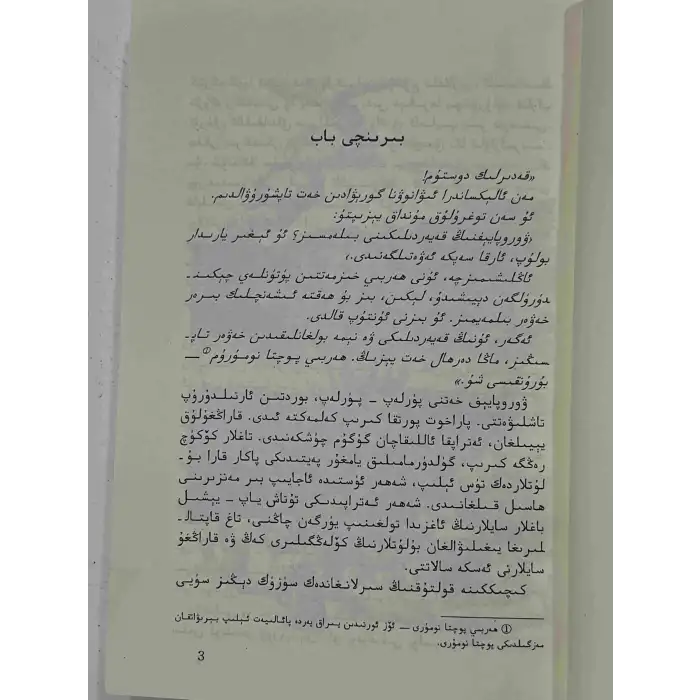 بىرىنچى باب
«قەدىرلىك دوستۇم!
مەن ئالېكساندرا ئىۋانوۋنا گوربۋادىن خەت تاپشۇرۇۋالدىم.
ئۇ سەن توغرۇلۇق مۇنداق يېزىپتۇ:
‹ۋوروپايېفنىڭ قەيەردىلىكىنى بىلەمسىز؟ ئۇ ئېغىر يارىدار
بولۇپ، ئارقا سەپكە ئەۋەتىلگەنىدى.›
ئاڭلىشىمىزچە، ئۇنى ھەربىي خىزمەتتىن پۈتۈنلەي چېكىنـ
دۈرۈلگەن دېيىشىدۇ، لېكىن، بىز بۇ ھەقتە ئىشەنچلىك بىرەر
خەۋەر بىلمەيمىز. ئۇ بىزنى ئۇنتۇپ قالدى.
ئەگەر، ئۇنىڭ قەيەردىلىكى ۋە نېمە بولغانلىقىدىن خەۋەر تاپـ
سىڭىز، ماڭا دەرھال خەت يېزىڭ. ھەربىي پوچتا نومۇرۇم① —
بۇرۇنقىسى شۇ.»
ۋوروپايېف خەتنى پۇرلەپ - پۇرلەپ، بوردتىن ئارتىلدۇرۇپ
تاشلىۋەتتى. پاراخوت پورتقا كىرىپ كەلمەكتە ئىدى. قاراڭغۇلۇق
يېيىلغان، ئەتراپقا ئاللىقاچان گۇگۇم چۈشكەنىدى. تاغلار كۆكۈچ
رەڭگە كىرىپ، گۈلدۈرمامىلىق يامغۇر پەيتىدىكى پاكار قارا بۇـ
لۇتلاردەك تۈس ئېلىپ، شەھەر ئۈستىدە ئاجايىپ بىر مەنزىرىنى
ھاسىل قىلغانىدى. شەھەر ئەتراپىدىكى تۇتاش ياپ - يېشىل
باغلار سايلارنىڭ ئاغزىدا تولغىنىپ يۈرگەن چاڭنى، تاغ قاپتالـ
لىرىغا يىغىلىۋالغان بۇلۇتلارنىڭ كۆلەڭگىلىرى كەڭ ۋە قاراڭغۇ
سايلارنى ئەسكە سالاتتى.
كىچىككىنە قولتۇقنىڭ سىرلانغاندەك سۈزۈك دېڭىز سۈيى
① ھەربىي پوچتا نومۇرى — ئۆز ئورنىدىن يىراق يەردە پائالىيەت ئېلىپ بېرىۋاتقان
مەزگىلدىكى پوچتا نومۇرى.
3